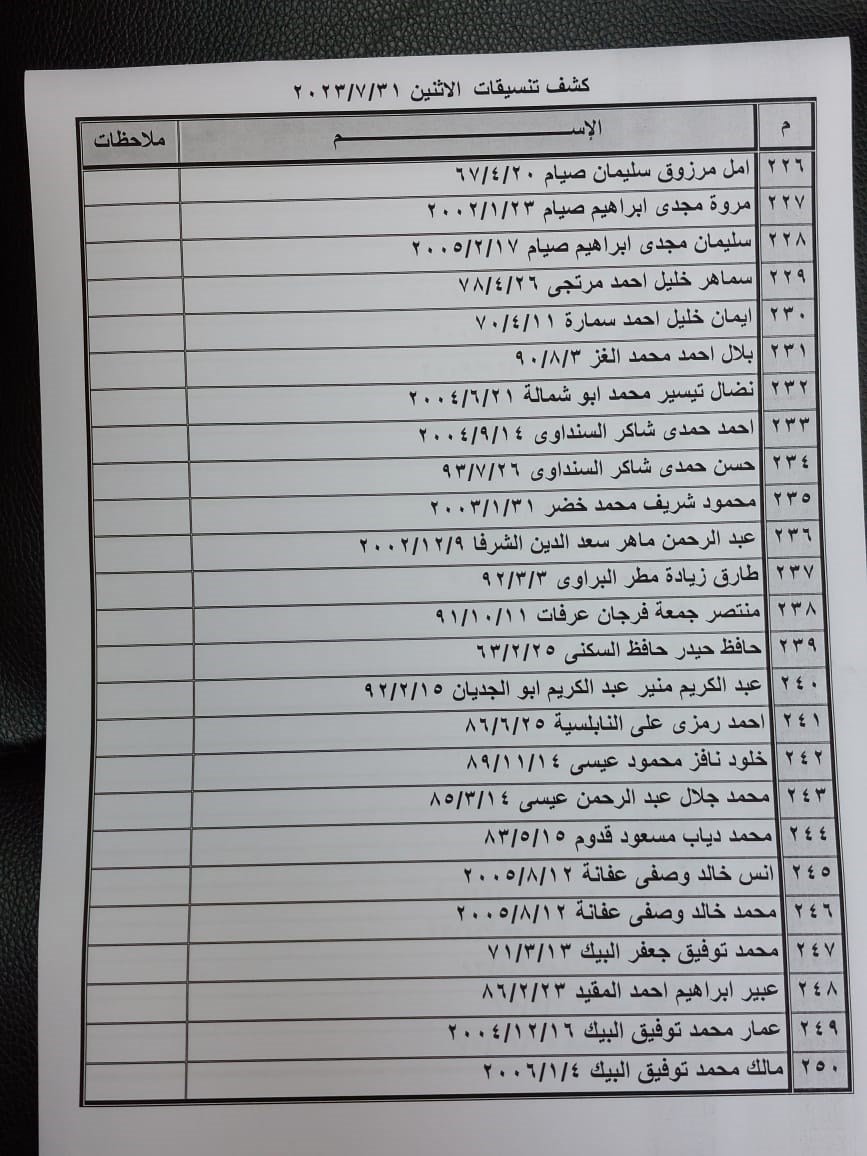 كشف تنسيقات الاثنين ٢٠٢٣/٧/٣١
م الإســـم ملاحظات
٢٢٦ امل مرزوق سليمان صيام ٦٧/٤/٢٠
٢٢٧ مروة مجدى ابراهيم صيام ٢٠٠٢/١/٢٣
٢٢٨ سليمان مجدى ابراهيم صيام ٢٠٠٥/٢/١٧
٢٢٩ سماهر خليل احمد مرتجى ٧٨/٤/٢٦
٢٣٠ ايمان خليل احمد سمارة ٧٠/٤/١١
٢٣١ بلال احمد محمد الغز ٩٠/٨/٣
٢٣٢ نضال تيسير محمد ابو شمالة ٢٠٠٤/٦/٢١
٢٣٣ احمد حمدى شاكر السنداوى ٢٠٠٤/٩/١٤
٢٣٤ حسن حمدى شاكر السنداوى ٩٣/٧/٢٦
٢٣٥ محمود شريف محمد خضر ٢٠٠٣/١/٣١
٢٣٦ عبد الرحمن ماهر سعد الدين الشرفا ٢٠٠٢/١٢/٩
٢٣٧ طارق زيادة مطر البراوى ٩٢/٣/٣
٢٣٨ منتصر جمعة فرجان عرفات ٩١/١٠/١١
٢٣٩ حافظ حيدر حافظ السكنى ٦٣/٢/٢٥
٢٤٠ عبد الكريم منير عبد الكريم ابو الجديان ٩٢/٢/١٥
٢٤١ احمد رمزى على النابلسية ٨٦/٦/٢٥
٢٤٢ خلود نافز محمود عيسى ٨٩/١١/١٤
٢٤٣ محمد جلال عبد الرحمن عيسى ٨٥/٣/١٤
٢٤٤ محمد دياب مسعود قدوم ٨٣/٥/١٥
٢٤٥ انس خالد وصفى عفانة ٢٠٠٥/٨/١٢
٢٤٦ محمد خالد وصفى عفانة ٢٠٠٥/٨/١٢
٢٤٧ محمد توفيق جعفر البيك ٧١/٣/١٣
٢٤٨ عبير ابراهيم احمد المقيد ٨٦/٢/٢٣
٢٤٩ عمار محمد توفيق البيك ٢٠٠٤/١٢/١٦
٢٥٠ مالك محمد توفيق البيك ٢٠٠٦/١/٤